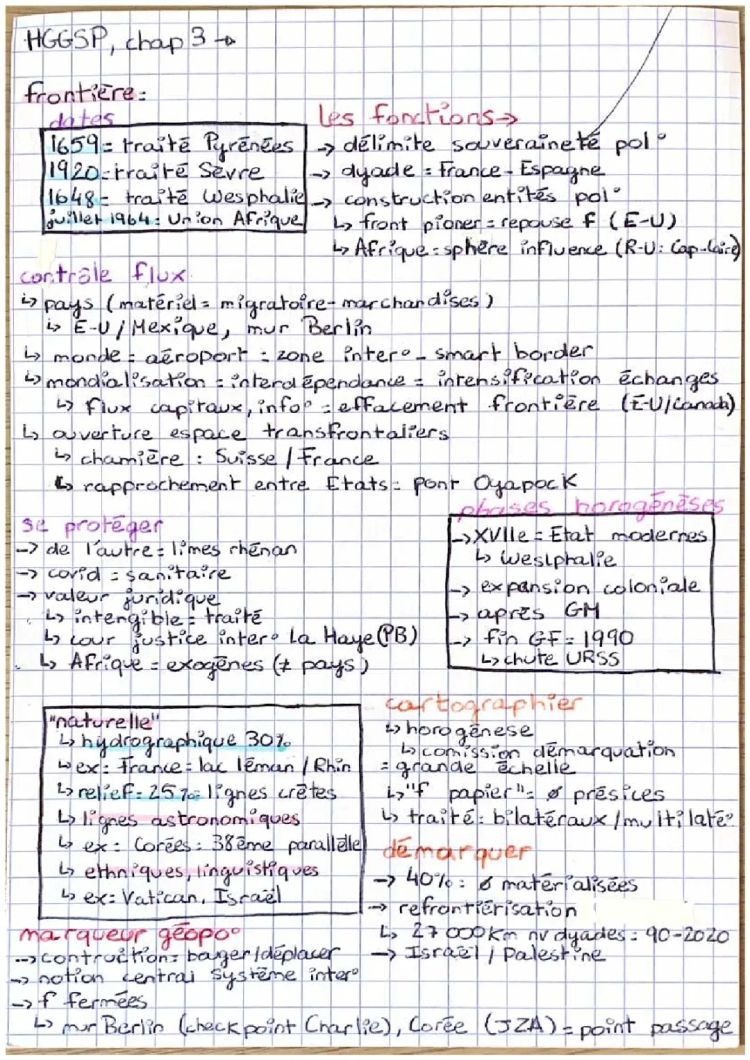 HGGSP, chap 3 →
frontière:
dates
1659= traité Pyrénées
1920= traité Sèvre
1648= traité Wesphalie
juillet 1964: Union Afrique
les fonctions→
→ délimite souveraineté pol°
→ dyade = France-Espagne
→ construction entités pol°
↳ front pioner = repouse f (E-U)
↳ Afrique = sphère influence (R-U: Cap-Caire)
contrôle flux
↳ pays (matériel = migratoire-marchandises)
↳ E-U/Mexique, mur Berlin
↳ monde = aéroport = zone inter° - smart border
↳ mondialisation = interdépendance = intensification échanges
↳ flux capitaux, info° = effacement frontière (E-U/Canada)
↳ ouverture espace transfrontaliers
↳ charnière : Suisse/France
↳ rapprochement entre Etats= pont OyapocK
se protéger
→ de l'autre = limes rhénan
→ covid = sanitaire
→ valeur juridique
↳ intengible = traité
↳ cour justice inter° La Haye (PB)
↳ Afrique = exogènes (≠ pays)
phases horogénèses
→ XVIIe = Etat modernes
↳ Weslphalie
→ expansion coloniale
→ après GM
→ fin GF = 1990
↳ chute URSS
"naturelle"
↳ hydrographique 30%
↳ ex: France = lac léman / Rhin
↳ relief = 25% = lignes crêtes
↳ lignes astronomiques
↳ ex = Corées : 38ème parallèlle
↳ ethniques, linguistiques
↳ ex: Vatican, Israël
cartographier
↳ horogénese
↳ comission démarquation
= grande échelle
↳ "f papier" = ø présices
↳ traité = bilatéraux / multilaté°
démarquer
→ 40% = ø matérialisées
→ refrontiérisation
↳ 27 000 Km nv dyades : 90-2020
→ Israël / Palestine
marqueur géopo°
→ contruction = bouger/déplacer
→ notion central système inter°
→ f fermées
↳ mur Berlin (checkpoint Charlie), Corée (JZA) = point passage